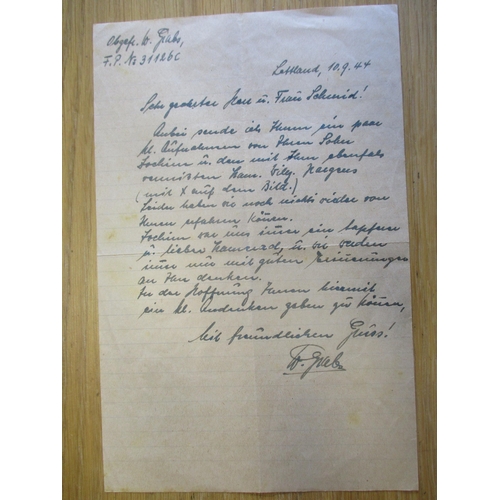 Obgefr. W. Grabs,
F.P. No 31126C
Lettland, 10.9.44
Sehr geehrter Herr u. Frau Schmid!
Anbei sende ich Ihnen ein paar
kl. Aufnahmen von Ihrem Sohn
Jochim u. den mit Ihm ebenfals
vermissten Kam.
(mit X auf dem Bild.)
Leider haben wir noch nichts wider von
Ihnen erfahren können.
Jochim war uns immer ein tapferer
u. lieber Kamerad, u. wir werden
immer nur mit guten Erinnerungen
an Ihn denken.
In der Hoffnung Ihnen hiermit
ein kl. Andenken geben zu können,
Mit freundlichen Gruss!
W. Grabs